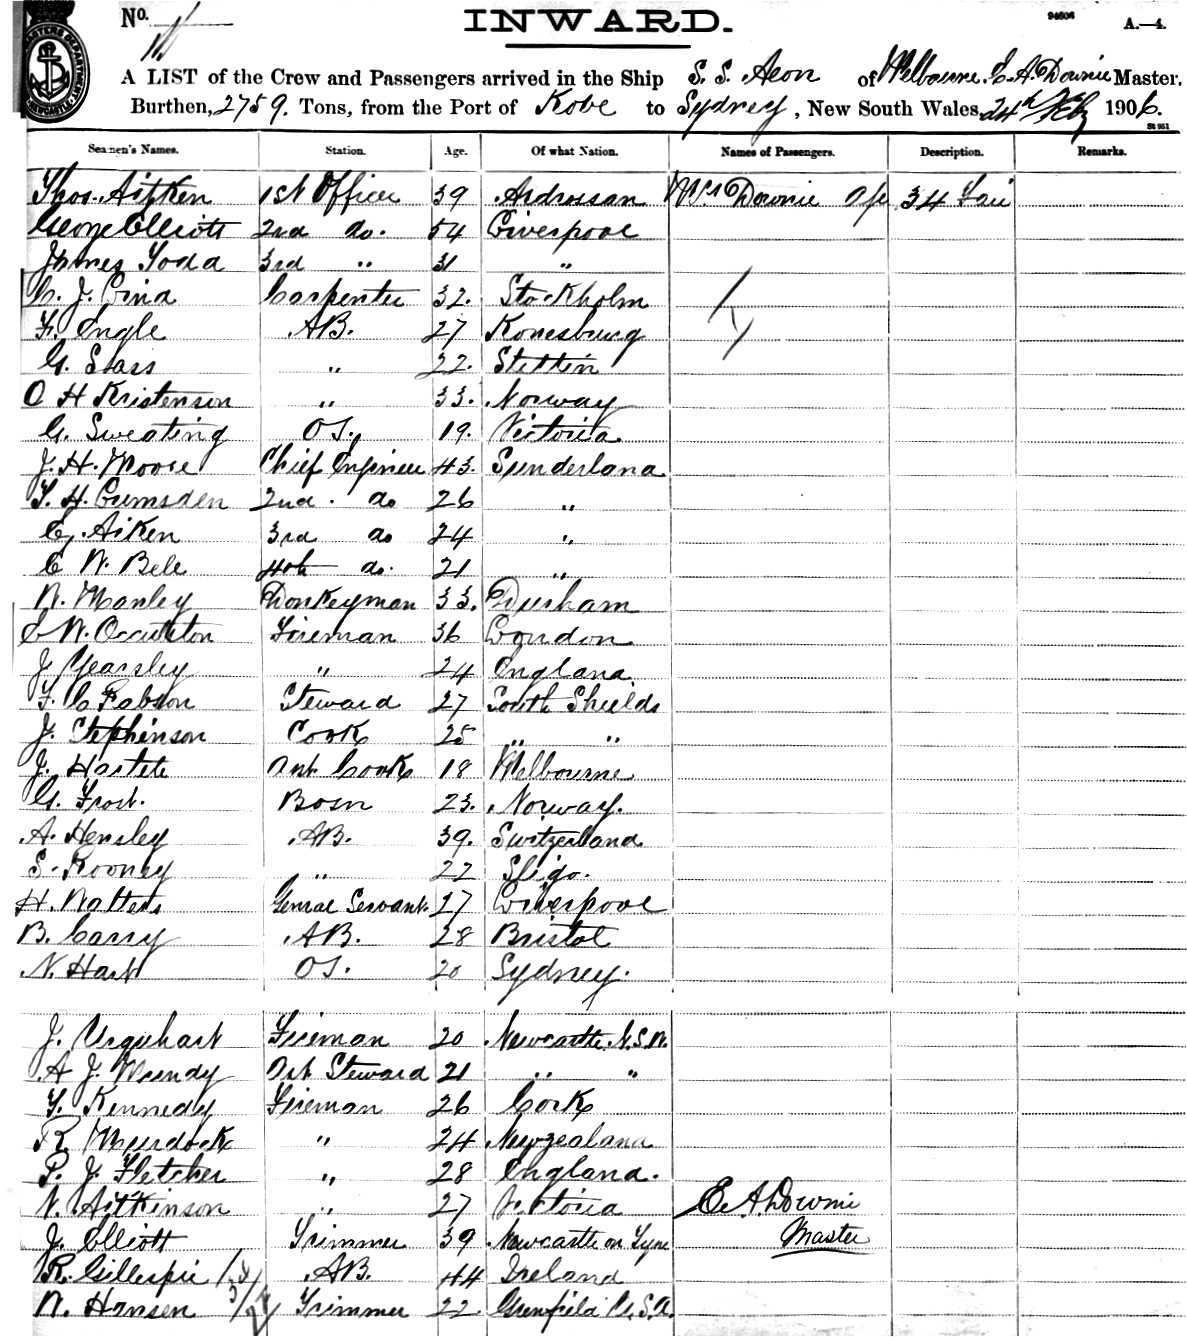 No.
INWARD.
94606
A.—4.
A LIST of the Crew and Passengers arrived in the Ship S. S. Aeon of Melbourne. C. A. Downie Master.
Burthen, 2759. Tons, from the Port of Kobe to Sydney, New South Wales, 24th Feby 1906.
Seamen's Names. Station. Age. Of what Nation. Names of Passengers. Description. Remarks.
Thos. Aitken 1st Officer 39 Ardrossan Mrs Downie 34
George Elliott 2nd do. 54 Liverpool
James Yoda 3rd " 31 "
C. J. Lind Carpenter 32. Stockholm
F. Engle AB. 27 Konesburg
G. Stass " 22. Stettin
O H Kristensen " 33. Norway
G. Sweating OS. 19. Victoria
J. H. Moore Chief Engineer 43. Sunderland
T. H. Lumsden 2nd. do 26 "
G. Aitken 3rd do 24 "
C W. Bell 4th do. 21 "
W. Manley Donkeyman 33. Durham
W. Fireman 36 London
J. Yearsley " 24 England
F. C Robson Steward 27 South Shields
J. Stephinson Cook 25 " "
J. Cook 18 Melbourne
G. Frost. Bosn 23. Norway.
A. Hensley AB. 39. Switzerland
S. Rooney " 22 Sligo.
H. Walters Genral Servant. 27 Liverpool
B. Carry AB. 28 Bristol
N. Hart OS. 20 Sydney.
J. Urquhart Fireman 20 Newcastle. N.S.W.
A J. Mundy Steward 21 " "
T. Kennedy Fireman 26 Cork
R. Murdock " 24 Newzealand
P. J. Fletcher " 28 England.
W. Aitkinson " 27 Victoria C. A. Downie
J. Elliott Trimmer 39 Newcastle on Tyne Master
R. Gillespie AB. 44 Ireland
W. Hansen Trimmer 22 Grenfield U.S.A.